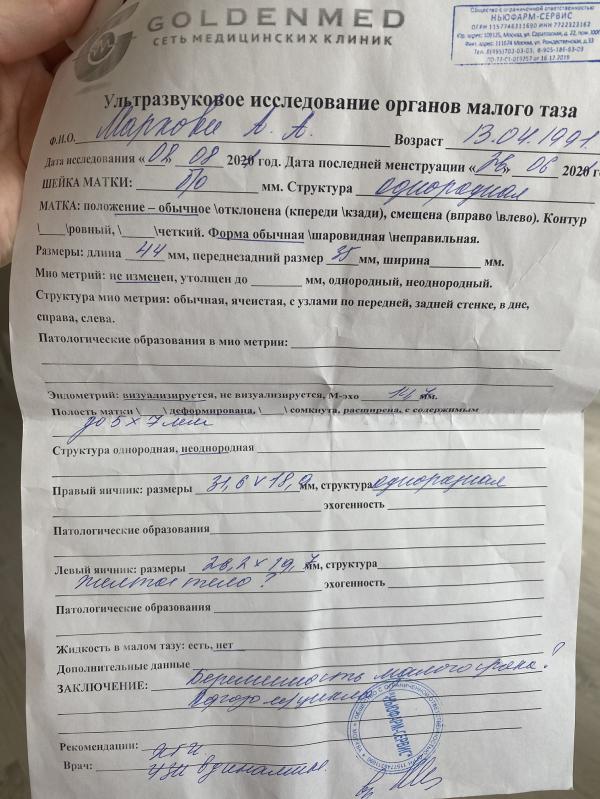 GOLDENMED
СЕТЬ МЕДИЦИНСКИХ КЛИНИК
Общество с ограниченной ответственностью
НЬЮФАРМ-СЕРВИС
ОГРН 1157746311690 ИНН 7722323163
Юр. адрес: 109125, Москва, ул. Саратовская, д. 22, пом.
Факт. адрес: 111674 Москва, ул. Рождественская, д.33
Тел. 8(495)703-03-03, 8-905-186-03-03
Ультразвуковое исследование органов малого таза
Ф.И.О. А. А. Возраст 13.04.1991
Дата исследования «08» 08 2021 год. Дата последней менструации « » 06 2021 г
ШЕЙКА МАТКИ: мм. Структура однородная
МАТКА: положение – обычное \отклонена (кпереди \кзади), смещена (вправо \влево). Контур
\____\ровный, \____\четкий. Форма обычная \шаровидная \неправильная.
Размеры: длина 44 мм, переднезадний размер 35 мм, ширина________ мм.
Мио метрий: не изменен, утолщен до ________ мм, однородный, неоднородный.
Структура мио метрия: обычная, ячеистая, с узлами по передней, задней стенке, в дне,
справа, слева.
Патологические образования в мио метрии:
Эндометрий: визуализируется, не визуализируется, М-эхо 14 мм.
Полость матки \____\ деформирована, \____\ сомкнута, расширена, с содержимым
до 5 х 7 мм
Структура однородная, неоднородная
Правый яичник: размеры 31,6 х 18,9 мм, структура однородная
эхогенность
Патологические образования
Левый яичник: размеры 26,2 х 19,7 мм, структура
желтое тело? эхогенность
Патологические образования
Жидкость в малом тазу: есть, нет
Дополнительные данные
ЗАКЛЮЧЕНИЕ: Беременность малого срока?
Рекомендации: ХГЧ
Врач: УЗИ в динамике.
"НЬЮФАРМ-СЕРВИС"